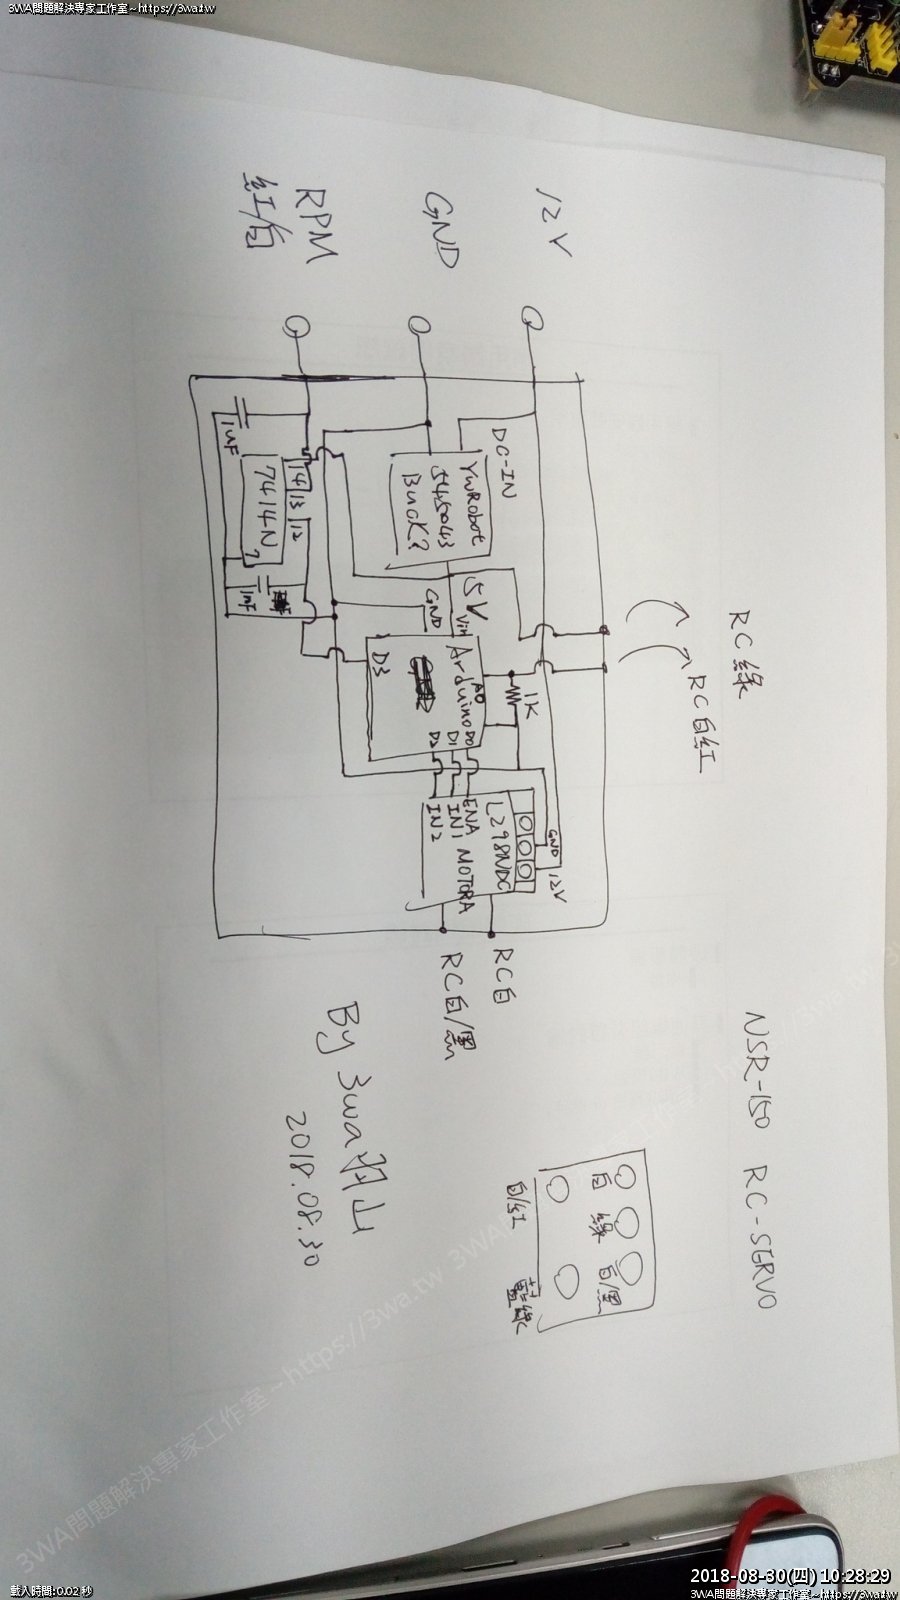 3WA問題解決專家工作室~https://3wa.tw
12V
GND
RPM
紅/白
DC-IN
YwRobot
545043
Buck?
1uF
14 13 12
7414N
7
1nF
5V
GND
Vin
Arduino
A0
D3
D2 D1 D0
1K
RC綠
RC白紅
L298NDC
ENA
IN1
IN2
MOTORA
GND
12V
RC白
RC白/黑
NSR-150 RC-SERVO
白 綠 白/黑
白/紅
藍綠
By 3wa羽山
2018.08.30
3WA問題解決專家工作室~https://3wa.tw
載入時間:0.02 秒
2018-08-30(四) 10:28:29
3WA問題解決專家工作室~https://3wa.tw